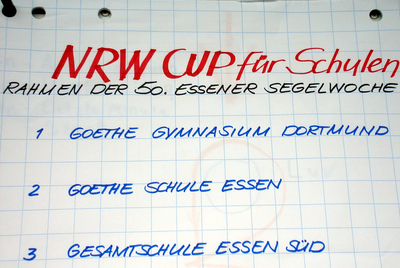 NRW CUP für Schulen
RAHMEN DER 50. ESSENER SEGELWOCHE
1 GOETHE GYMNASIUM DORTMUND
2 GOETHE SCHULE ESSEN
3 GESAMTSCHULE ESSEN SÜD